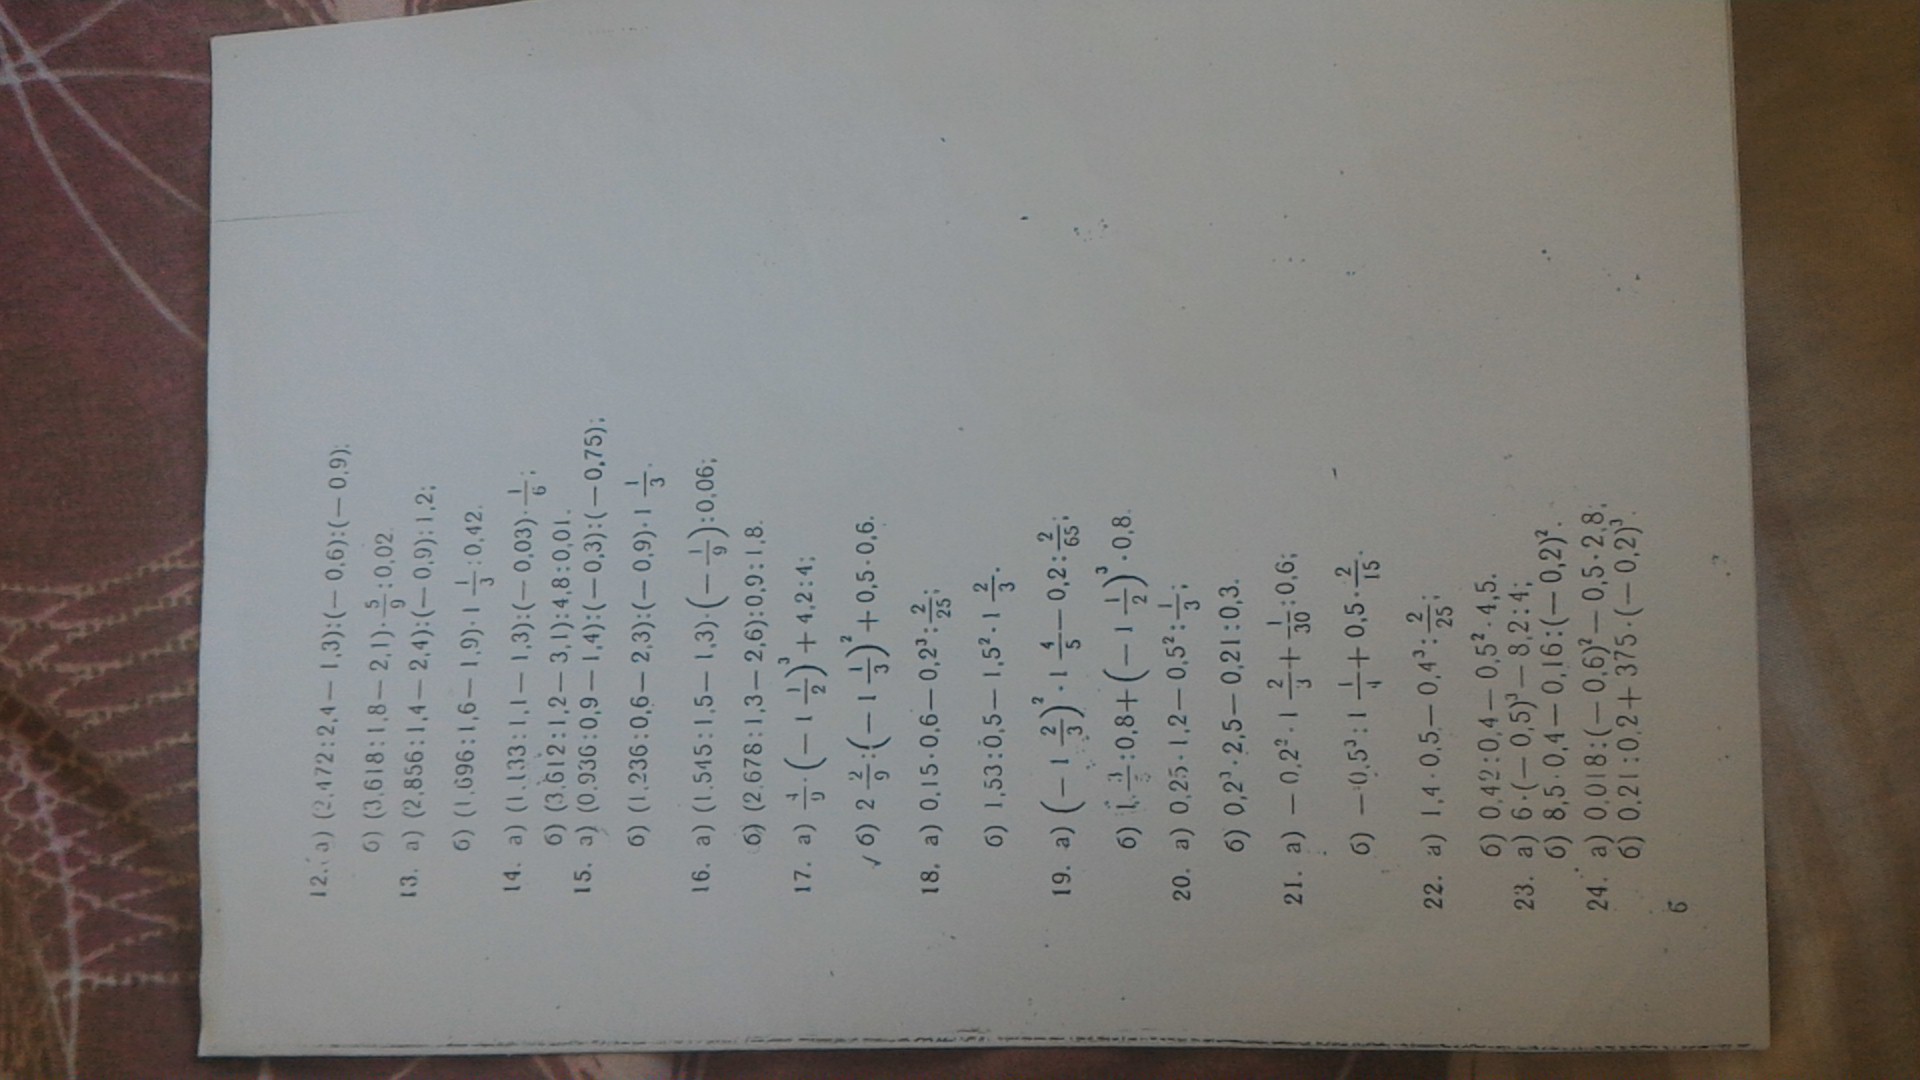 12. а) (2,472 : 2,4 — 1,3) : (— 0,6) : (— 0,9);
б) (3,618 : 1,8 — 2,1) · 5/9 : 0,02.
13. а) (2,856 : 1,4 — 2,4) : (— 0,9) : 1,2;
б) (1,696 : 1,6 — 1,9) · 1 1/3 : 0,42.
14. а) (1,133 : 1,1 — 1,3) : (— 0,03) · 1/6;
б) (3,612 : 1,2 — 3,1) : 4,8 : 0,01.
15. а) (0,936 : 0,9 — 1,4) : (— 0,3) : (— 0,75);
б) (1,236 : 0,6 — 2,3) : (— 0,9) · 1 1/3.
16. а) (1,545 : 1,5 — 1,3) · (— 1/9) : 0,06;
б) (2,678 : 1,3 — 2,6) : 0,9 : 1,8.
17. а) 4/9 · (— 1 1/2)³ + 4,2 : 4;
✓ б) 2 2/9 : (— 1 1/3)² + 0,5 · 0,6.
18. а) 0,15 · 0,6 — 0,2³ : 2/25;
б) 1,53 : 0,5 — 1,5² · 1 2/3.
19. а) (— 1 2/3)² · 1 4/5 — 0,2 : 2/65;
б) : 0,8 + (— 1 1/2)³ · 0,8.
20. а) 0,25 · 1,2 — 0,5² : 1/3;
б) 0,2³ · 2,5 — 0,21 : 0,3.
21. а) — 0,2² · 1 2/3 + 1/30 : 0,6;
б) — 0,5³ : 1 1/4 + 0,5 · 2/15.
22. а) 1,4 · 0,5 — 0,4³ : 2/25;
б) 0,42 : 0,4 — 0,5² · 4,5.
23. а) 6 · (— 0,5)³ — 8,2 : 4;
б) 8,5 · 0,4 — 0,16 : (— 0,2)².
24. а) 0,018 : (— 0,6)² — 0,5 · 2,8;
б) 0,21 : 0,2 + 375 · (— 0,2)³.
6